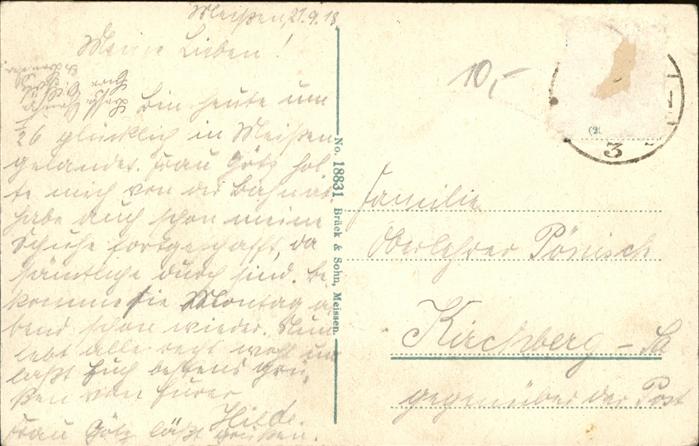 Meißen, 21.9.18.
Meine Lieben!
Bin heute um
1/26 glücklich in Meißen
gelandet. Frau Götz hol-
te mich von der Bahn ab.
Habe auch schon meine
Schuhe fortgeschafft, da
sämtliche durch sind. Be-
komme sie Montag a-
bend schon wieder. Nun
lebt alle recht wohl und
laßt Euch bestens grü-
ßen von Eurer
Hilde.
Frau Götz läßt grüßen.
No. 18831 Brück & Sohn, Meissen.
10,-
3
Familie
Oberlehrer Pönisch
Kirchberg - Sa
gegenüber der Post